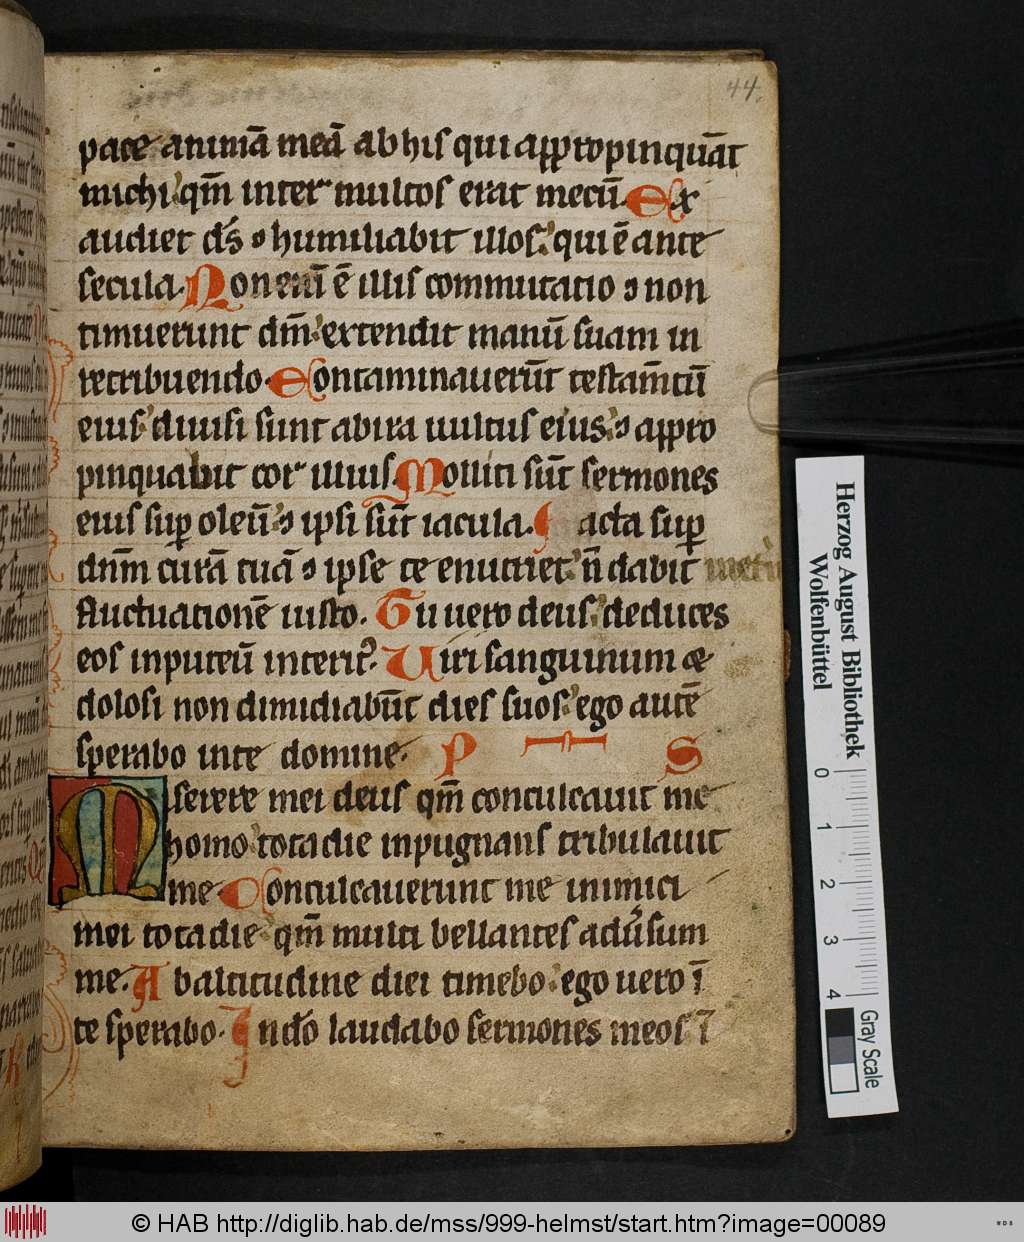 44.
pace animā meā ab his qui appropinquāt
michi qm̄ inter multos erat mecū. Ex
audiet ds̄ ⁊ humiliabit illos qui ē ante
secula. Non enī ē illis commutatio ⁊ non
timuerunt dm̄ extendit manū suam in
retribuendo. Contaminauerūt testam̄tū
eius diuisi sunt ab ira uultus eius ⁊ appro
pinquabit cor illius. Molliti sūt sermones
eius suꝑ oleū ⁊ ipsi sūt iacula. Iacta suꝑ
dn̄m curā tuā ⁊ ipse te enutriet n̄ dabit
fluctuationē iusto. Tu uero deus deduces
eos in puteū interitꝰ. Uiri sanguinum &
dolosi non dimidiabūt dies suos ego autē
sperabo in te domine. P IT S
Miserere mei deus qm̄ conculcauit me
homo tota die inpugnans tribulauit
me Conculcauerunt me inimici
mei tota die qm̄ multi bellantes adūsum
me. Ab altitudine diei timebo ego uero ī
te sperabo. In dō laudabo sermones meos ī
Herzog August Bibliothek
Wolfenbüttel
0 1 2 3 4
Gray Scale
© HAB http://diglib.hab.de/mss/999-helmst/start.htm?image=00089